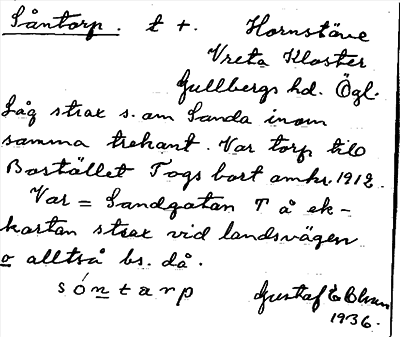 Såntorp. t +. Hornstäve
Vreta Kloster
Gullbergs hd. Ögl.
Låg strax s. om Sanda inom
samma trekant. Var torp till
Bostället Togs bort omkr. 1912.
Var = Sandgatan T å ek-
kartan strax vid landsvägen
o alltså bs. då.
sóntarp
Gustaf E
1936.